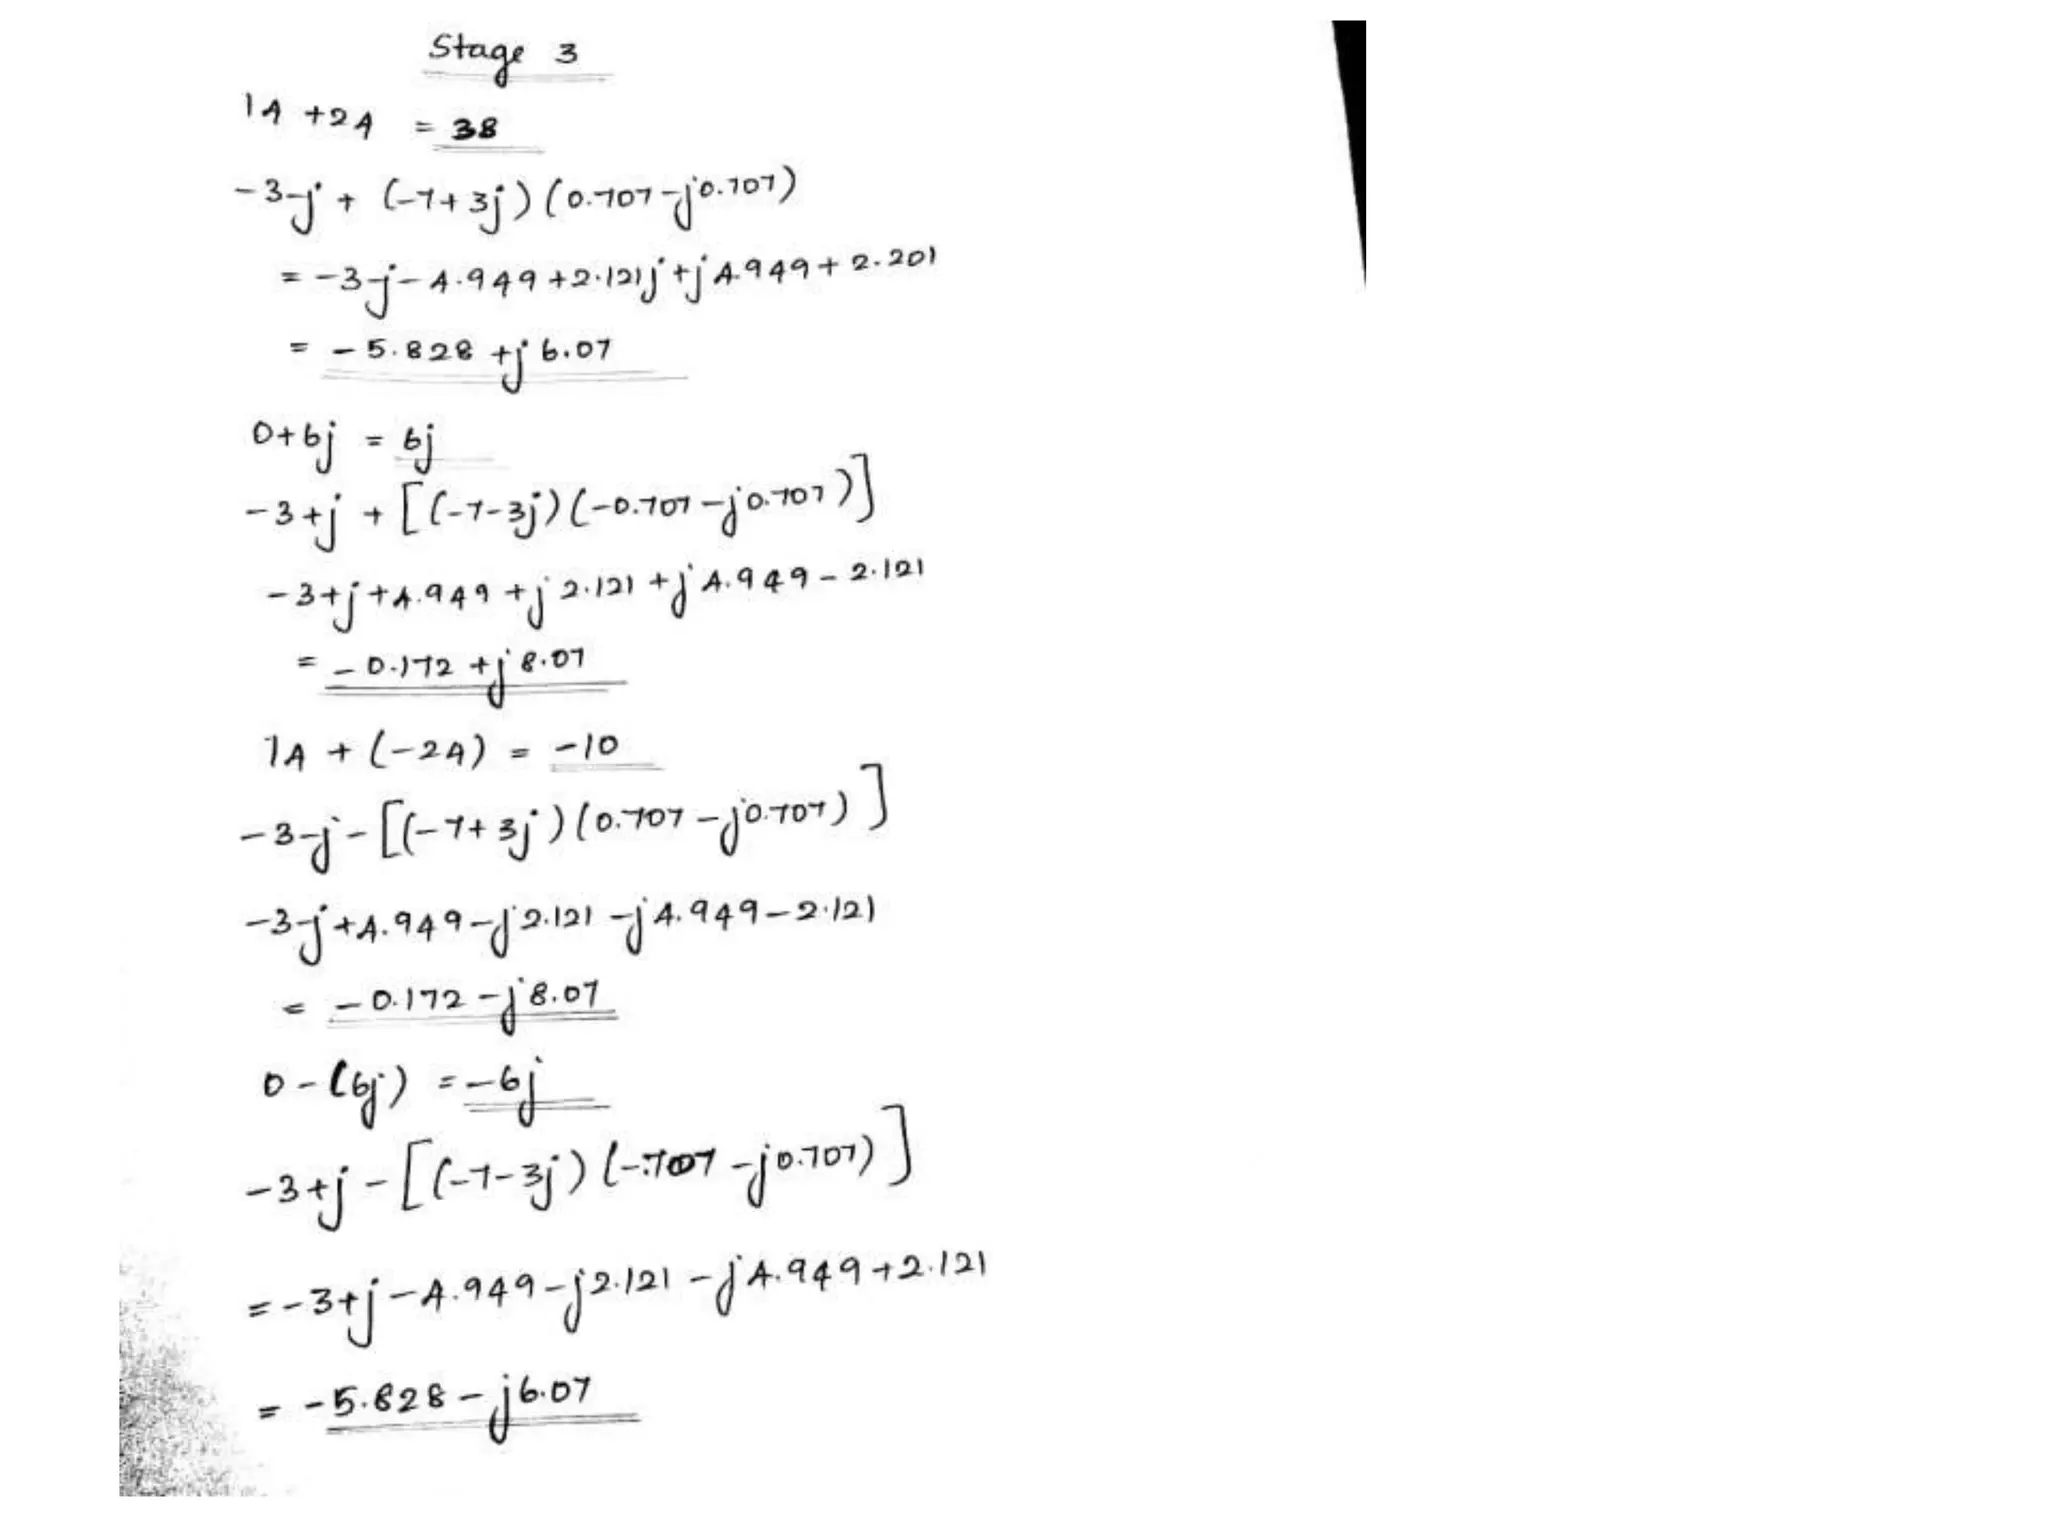 Stage 3
14 + 24 = 38
-3-j + (-7+3j)(0.707-j0.707)
= -3-j-4.949+2.121j+j4.949+2.201
= -5.828+j6.07
0+6j = 6j
-3+j + [(-7-3j)(-0.707-j0.707)]
-3+j+4.949+j2.121+j4.949-2.121
= -0.172+j8.07
14 + (-24) = -10
-3-j-[(-7+3j)(0.707-j0.707)]
-3-j+4.949-j2.121-j4.949-2.121
= -0.172-j8.07
0-(6j) = -6j
-3+j-[(-7-3j)(-.707-j0.707)]
= -3+j-4.949-j2.121-j4.949+2.121
= -5.828-j6.07